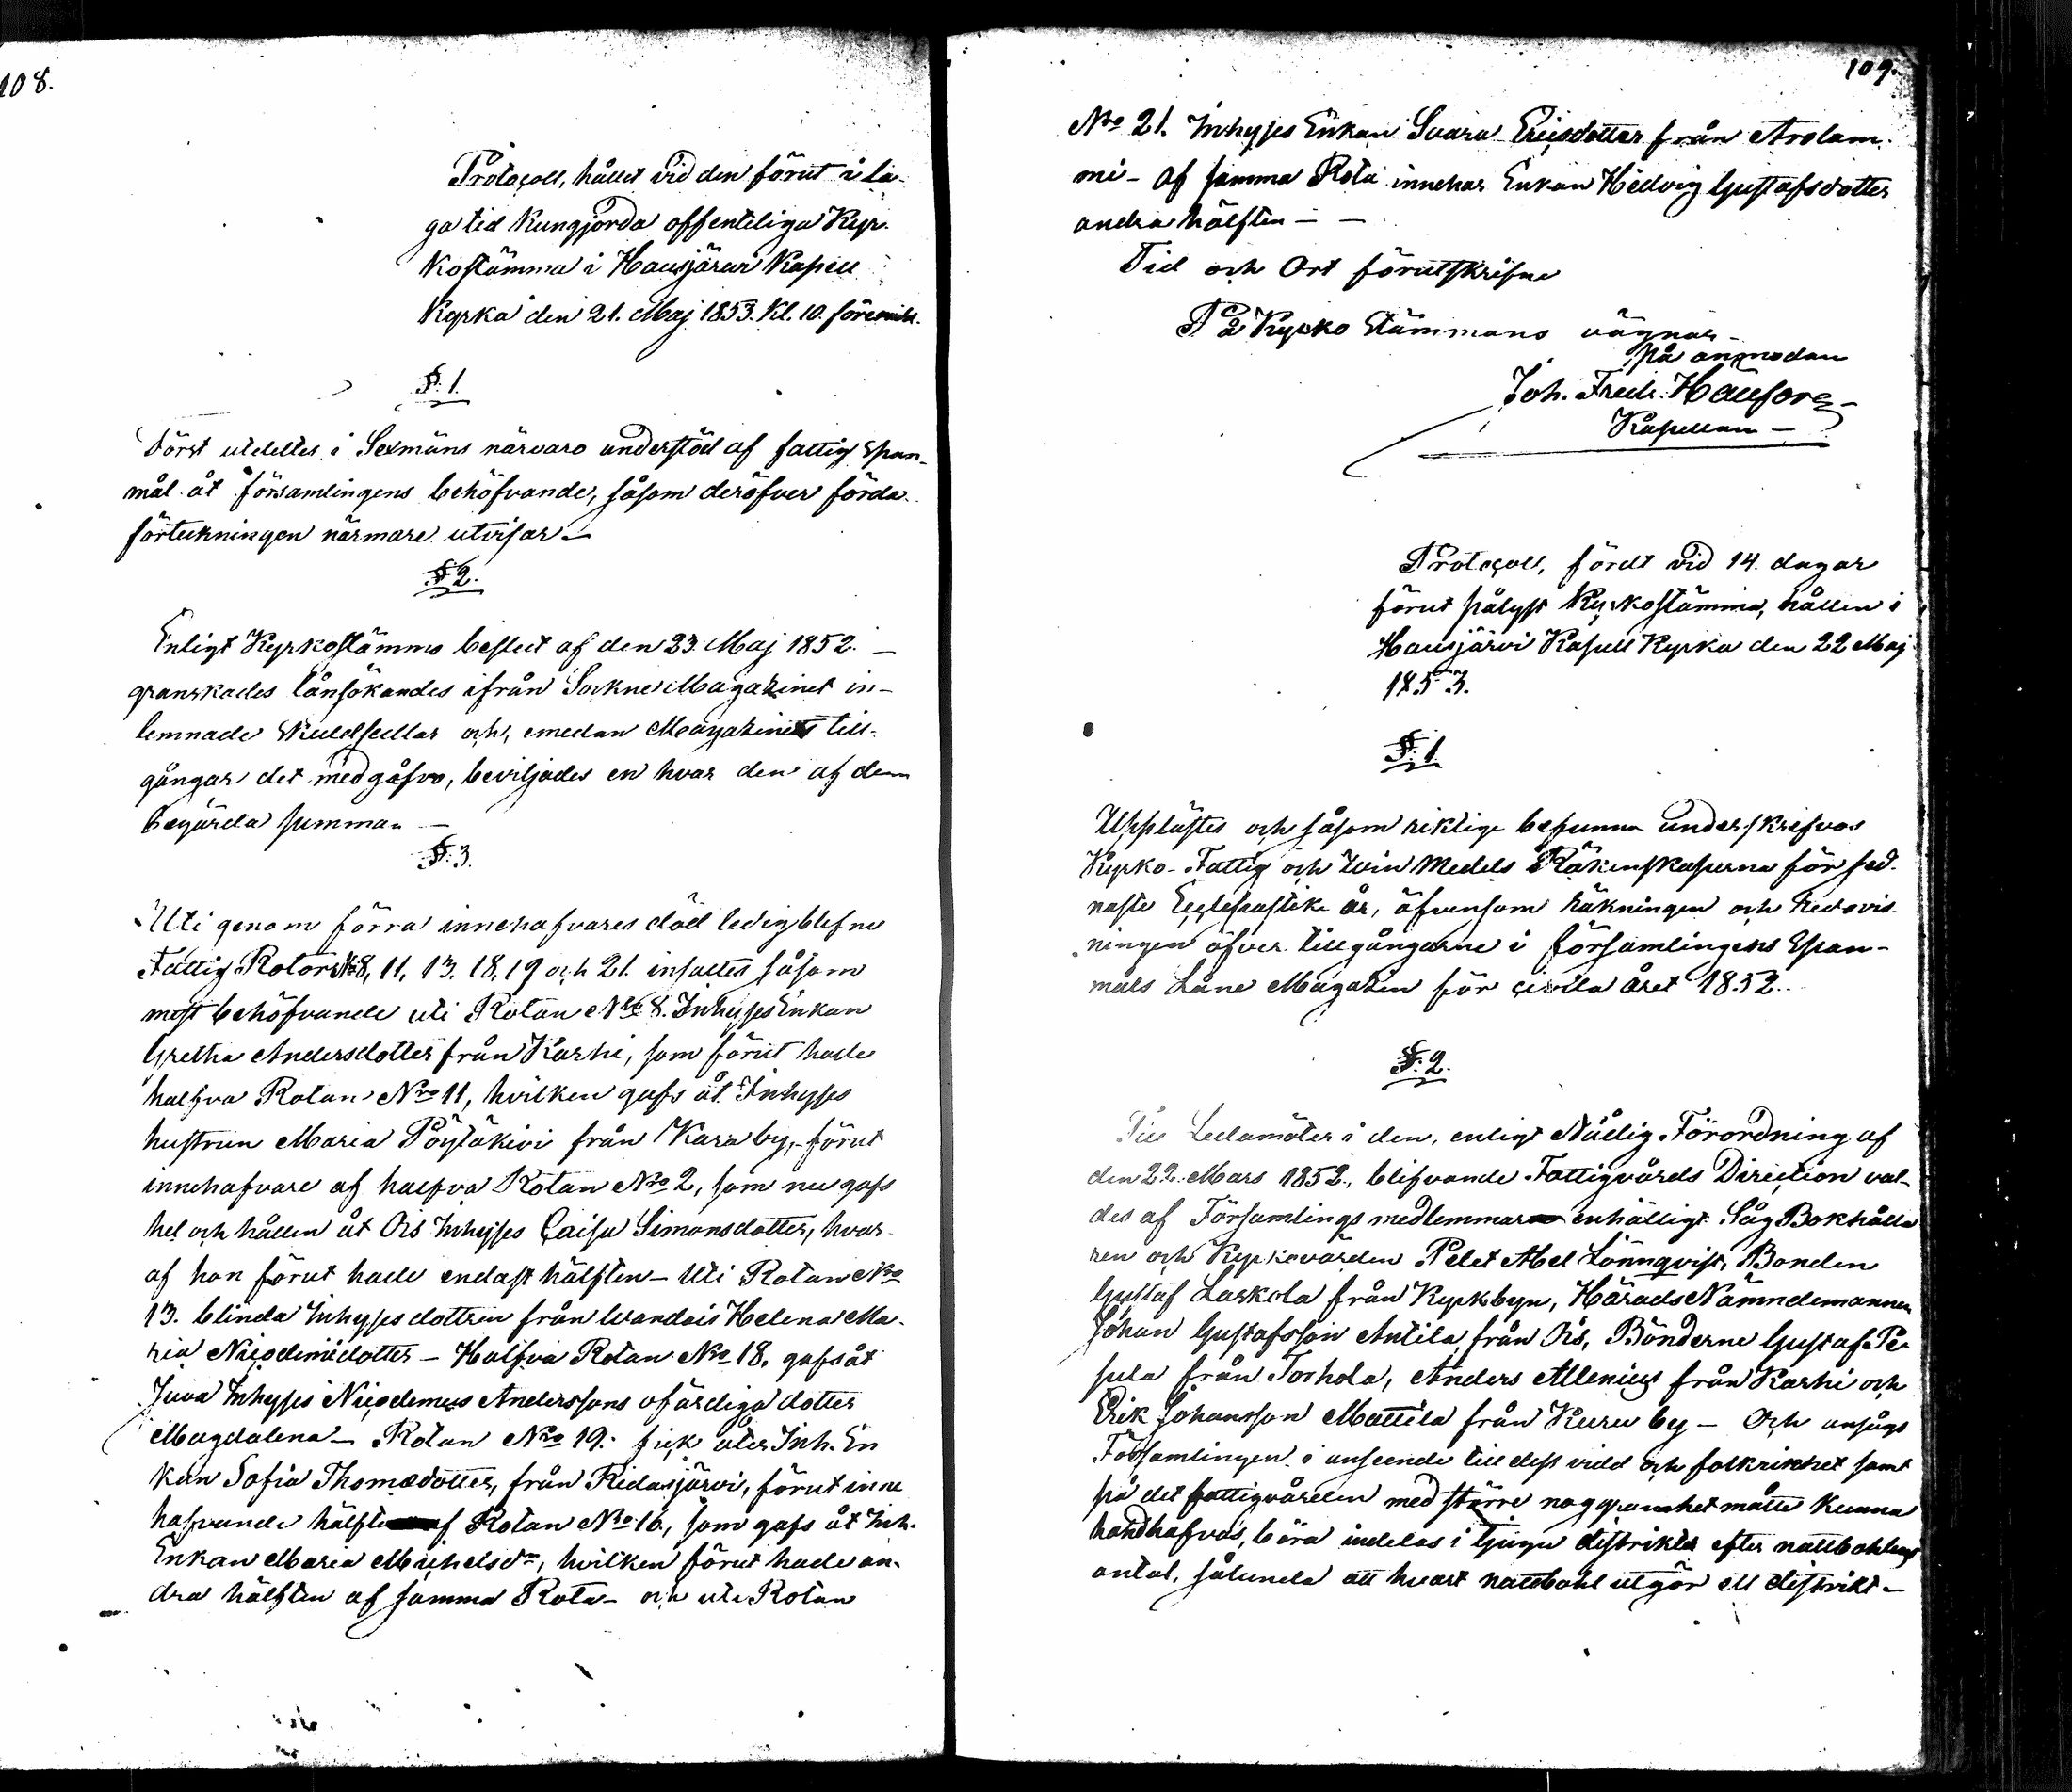 108.
Protocoll, hållet vid den förut i la-
ga tid kungjorda offenteliga Kyr-
kostämma i Hausjärvi Kapell
Kyrka den 21. Maj 1853. Kl. 10. förem.
§. 1.
Först utdeltes i Sexmäns närvaro understöd af fattig Span-
mål åt församlingens behöfvande, såsom deröfver förda
förteckningen närmare utvisar —
§ 2.
Enligt Kyrkostämmo beslut af den 23. Maj 1852. —
granskades lånsökandes ifrån Sockne Magazinet in-
lemnade Skuldsedlar och, emedan Magazinets till-
gångar det medgåfvo, beviljades en hvar den af dem
begärda summan —
§. 3.
Uti genom förra innehafvares död ledigblefne
Fattig Rotor No 8, 11, 13. 18, 19 och 21. insattes såsom
mest behöfvande uti Rotan No 8. Inhyses Enkan
Gretha Andersdotter från Karhi, som förut hade
halfva Rotan Nro 11, hvilken gafs åt Inhyses
hustrun Maria Pöytäkivi från Karaby, förut
innehafvare af halfva Rotan No 2, som nu gafs
hel och hållen åt Ois Inhyses Caisa Simonsdotter, hvar-
af hon förut hade endast hälften — Uti Rotan No
13. blinda Inhyses dottren från Wandais Helena Ma-
ria Nicodemidotter — Halfva Rotan No 18. gafs åt
Juva Inhyses Nicodemus Anderssons ofärdiga dotter
Magdalena — Rotan No 19. fick åter Inh. En
kan Sofia Thomædotter, från Ridasjärvi, förut inne
hafvande hälften af Rotan No 16., som gafs åt Inh.
Enkan Maria Michelsdr, hvilken förut hade an-
dra hälften af samma Rota — och uti Rotan
109.
No 21. Inhyses Enkan Saara Ericsdotter från Arolam-
mi — af samma Rota innehar Enkan Hedvig Gustafsdotter
andra hälften — —
Tid och Ort förutskrifne
På Kyrko Stämmans vägnar —
på anmodan
Joh. Fredr. Häufors —
Kapellan —
Protocoll, fördt vid 14. dagar
förut pålyst Kyrkostämma, hållen i
Hausjärvi Kapell Kyrka den 22 Maj
1853.
§. 1.
Upplästes och såsom riktige befunna underskrefvos
Kyrko- Fattig och Win Medels Räkenskaperna för sed-
naste Ecclesiastike år, äfvensom räkningen och redovis-
ningen öfver tillgångarne i församlingens Span-
måls Låne Magazin för civila året 1852.
§. 2.
Till Ledamöter i den, enligt Nådig Förordning af
den 22. Mars 1852., blifvande Fattigvårds Direction val-
des af Församlings medlemmar enhälligt Såg Bokhålla
ren och Kyrkovärden Petet Abel Lönnqvist, Bonden
Gustaf Laskola från Kyrkbyn, Härads Nämndemannen
Johan Gustafsson Antila, från Ois, Bönderne Gustaf Pe-
sula från Torhola, Anders Allenius från Karhi och
Erik Johansson Mattila från Kuru by — Och ansågs
Församlingen i anseende till dess vidd och folkrikhet samt
på det fattigvården med större noggrannhet måtte kunna
handhafvas, böra indelas i tjugu distrikter efter nattbohlens
antal, sålunda att hvart nattbohl utgör ett distrikt —